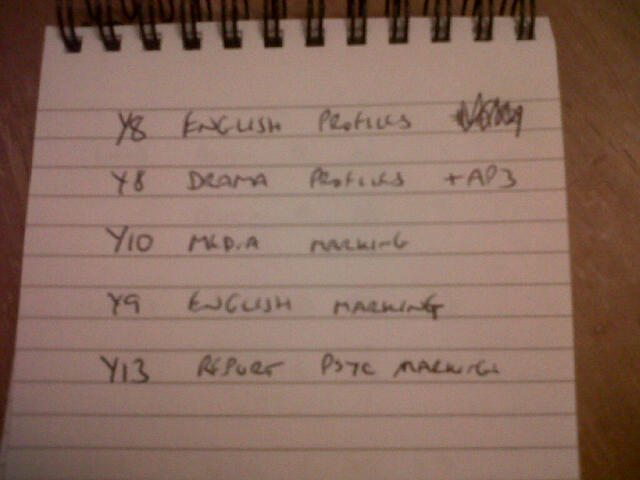 Y8 ENGLISH PROFILES
Y8 DRAMA PROFILES + AP3
Y10 MEDIA MARKING
Y9 ENGLISH MARKING
Y13 REPORT PSYC MARKING